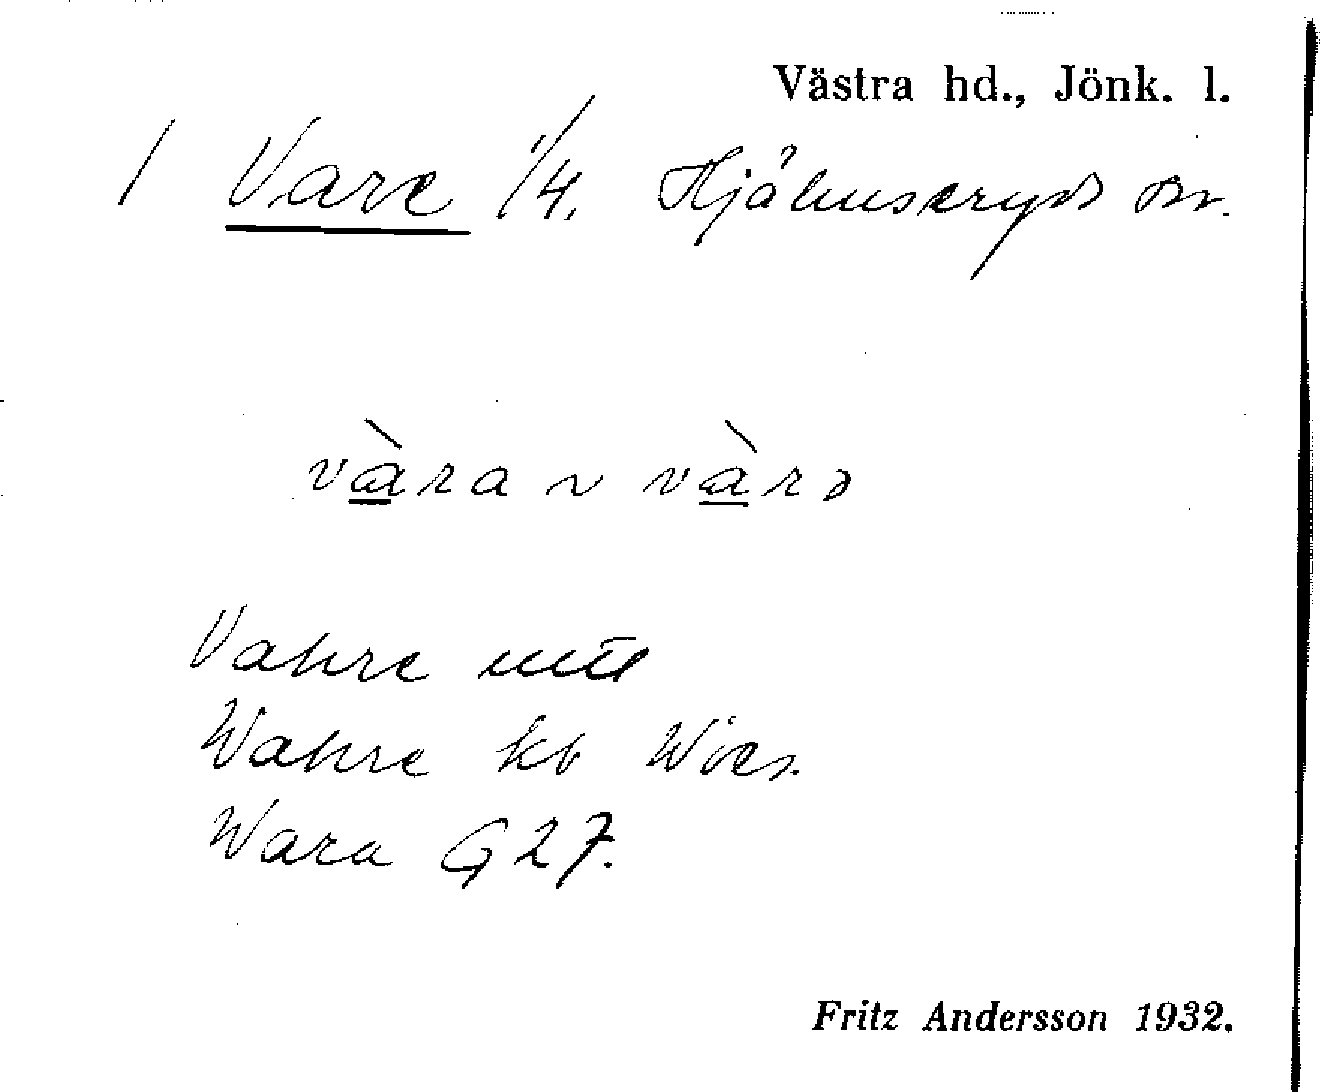 Västra hd., Jönk. l.
/ Vare 1/4. Hjälmseryds sn.
vàra ~ vàrə
Vahre
Wahre kb
Wara G 27.
Fritz Andersson 1932.